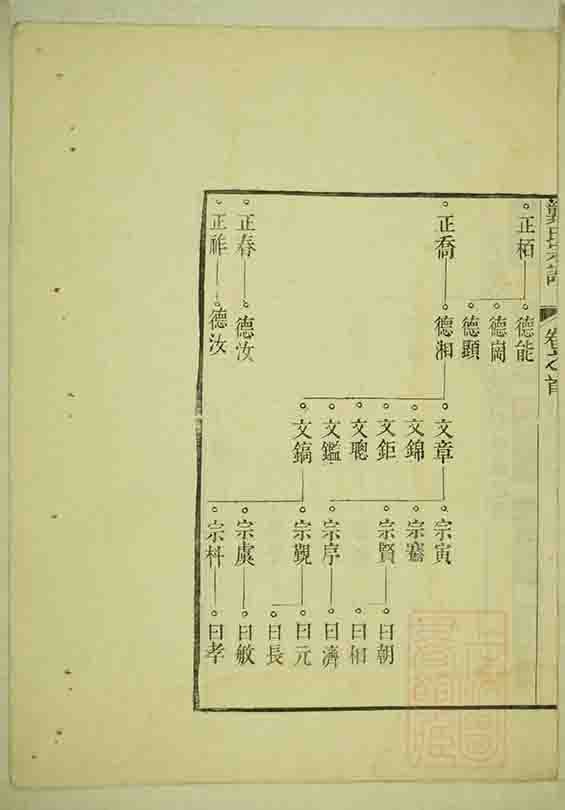 氏宗譜
卷之首
正栢
正喬
正春
正祚
德能
德崗
德顯
德湘
德汝
德汝
文章
文錦
文鉅
文聰
文鑑
文鎬
宗寅
宗騫
宗賢
宗序
宗覲
宗虞
宗科
曰朝
曰相
曰濟
曰元
曰長
曰敏
曰孝